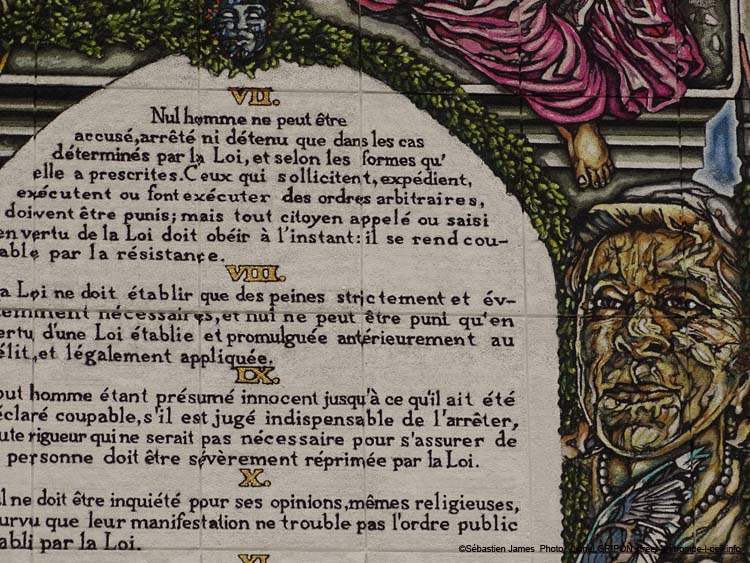 VII.
Nul homme ne peut être
accusé, arrêté ni détenu que dans les cas
déterminés par la Loi, et selon les formes qu'
elle a prescrites. Ceux qui sollicitent, expédient,
exécutent ou font exécuter des ordres arbitraires,
doivent être punis; mais tout citoyen appelé ou saisi
en vertu de la Loi doit obéir à l'instant: il se rend cou-
able par la résistance.
VIII.
a Loi ne doit établir que des peines strictement et év-
emment nécessaires, et nul ne peut être puni qu'en
ertu d'une Loi établie et promulguée antérieurement au
élit, et légalement appliquée.
IX.
out homme étant présumé innocent jusqu'à ce qu'il ait été
éclaré coupable, s'il est jugé indispensable de l'arrêter,
oute rigueur qui ne serait pas nécessaire pour s'assurer de
personne doit être sévèrement réprimée par la Loi.
X.
ul ne doit être inquiété pour ses opinions, mêmes religieuses,
ourvu que leur manifestation ne trouble pas l'ordre public
abli par la Loi.
XI
©Sébastien James Photo